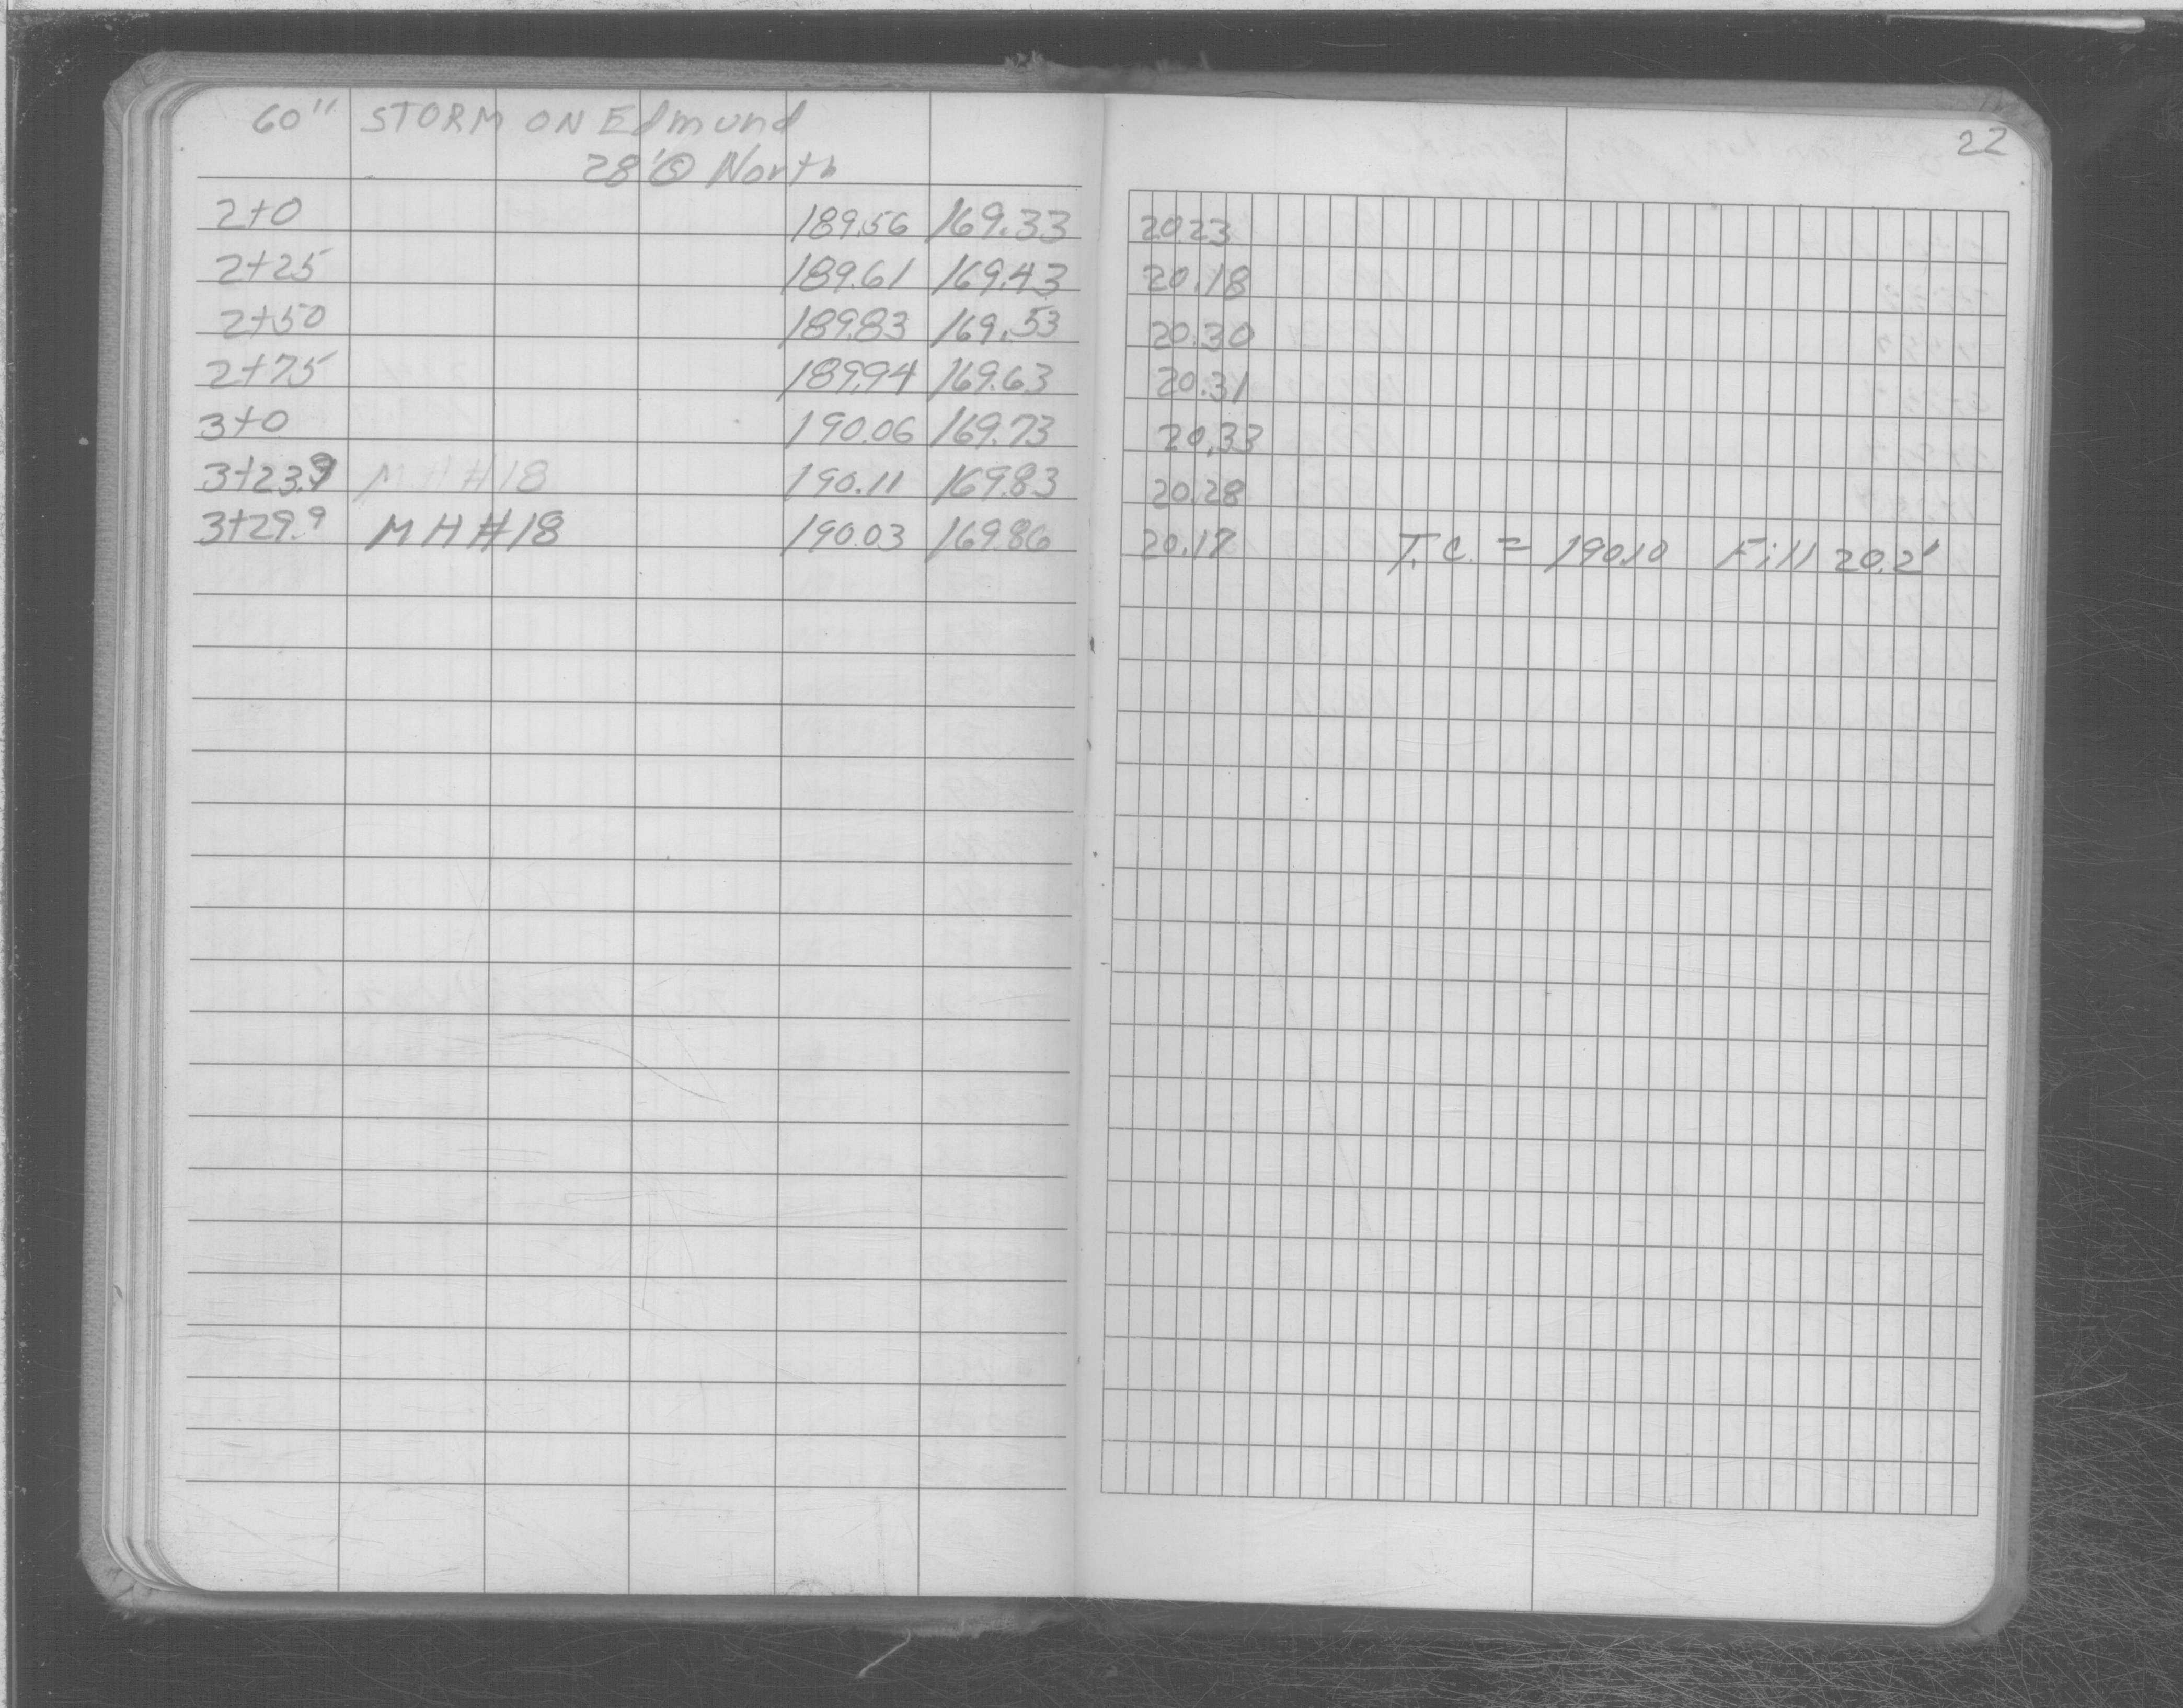 22
60" STORM ON Edmund
28' @ North
2+0 189.56 169.33 20.23
2+25 189.61 169.43 20.18
2+50 189.83 169.53 20.30
2+75 189.94 169.63 20.31
3+0 190.06 169.73 20.33
3+23.9 MH #18 190.11 169.83 20.28
3+29.9 MH #18 190.03 169.86 20.17 T.C. = 190.10 Fill 20.2'